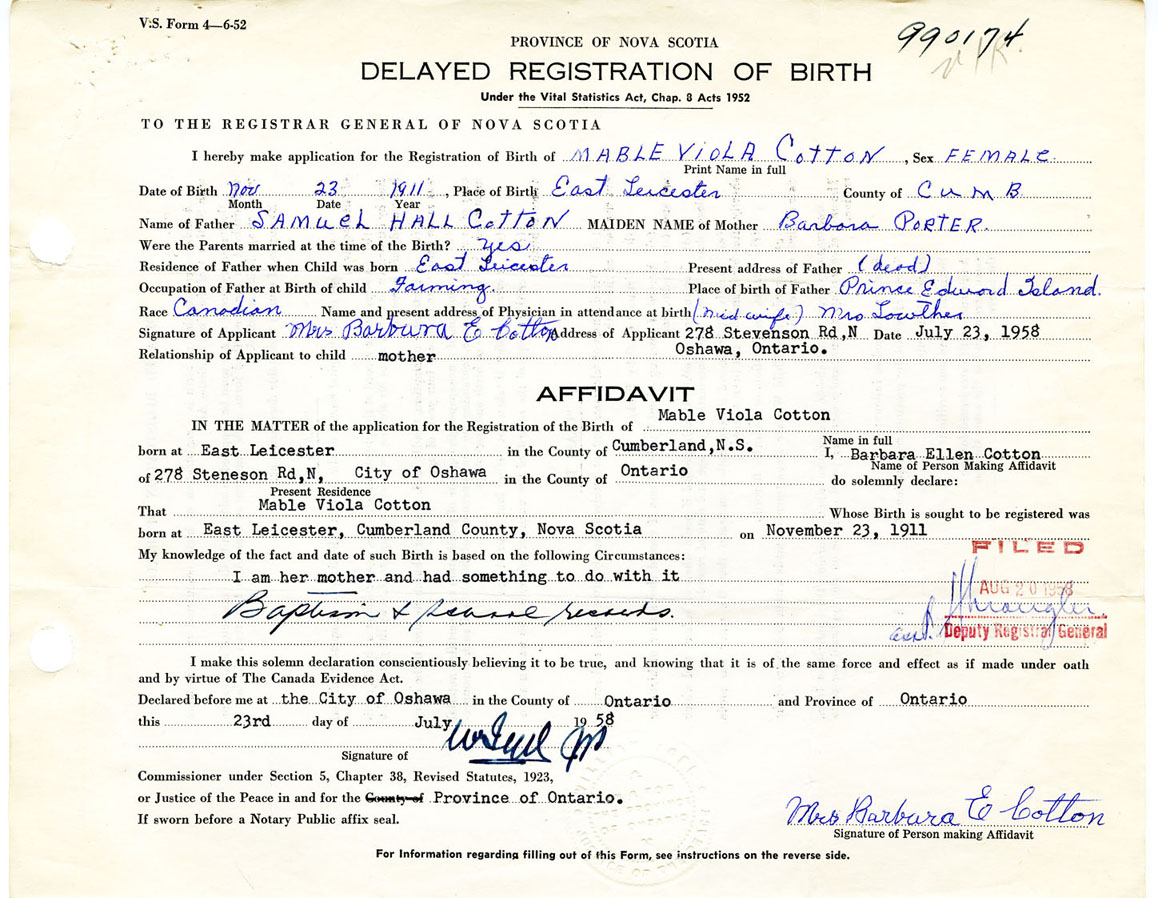 V.S. Form 4—6-52
990174
PROVINCE OF NOVA SCOTIA
DELAYED REGISTRATION OF BIRTH
Under the Vital Statistics Act, Chap. 8 Acts 1952
TO THE REGISTRAR GENERAL OF NOVA SCOTIA
I hereby make application for the Registration of Birth of MABLE VIOLA COTTON, Sex FEMALE
Print Name in full
Date of Birth Nov 23 1911, Place of Birth East Leicester County of CUMB
Month Date Year
Name of Father SAMUEL HALL COTTON MAIDEN NAME of Mother Barbara PORTER.
Were the Parents married at the time of the Birth? yes
Residence of Father when Child was born East Leicester Present address of Father (dead)
Occupation of Father at Birth of child Farming. Place of birth of Father Prince Edward Island.
Race Canadian Name and present address of Physician in attendance at birth (midwife) Mrs Lowther
Signature of Applicant Mrs Barbara E Cotton Address of Applicant 278 Stevenson Rd,N Date July 23, 1958
Relationship of Applicant to child mother Oshawa, Ontario.
AFFIDAVIT
IN THE MATTER of the application for the Registration of the Birth of Mable Viola Cotton
Name in full
born at East Leicester in the County of Cumberland,N.S. I, Barbara Ellen Cotton
Name of Person Making Affidavit
of 278 Steneson Rd,N, City of Oshawa in the County of Ontario do solemnly declare:
Present Residence
That Mable Viola Cotton Whose Birth is sought to be registered was
born at East Leicester, Cumberland County, Nova Scotia on November 23, 1911
My knowledge of the fact and date of such Birth is based on the following Circumstances:
FILED
I am her mother and had something to do with it
AUG 20 1958
Baptism & school records.
Deputy Registrar General
I make this solemn declaration conscientiously believing it to be true, and knowing that it is of the same force and effect as if made under oath
and by virtue of The Canada Evidence Act.
Declared before me at the City of Oshawa in the County of Ontario and Province of Ontario
this 23rd day of July 1958
Signature of
Commissioner under Section 5, Chapter 38, Revised Statutes, 1923,
or Justice of the Peace in and for the County of Province of Ontario.
If sworn before a Notary Public affix seal.
Mrs Barbara E Cotton
Signature of Person making Affidavit
For Information regarding filling out of this Form, see instructions on the reverse side.